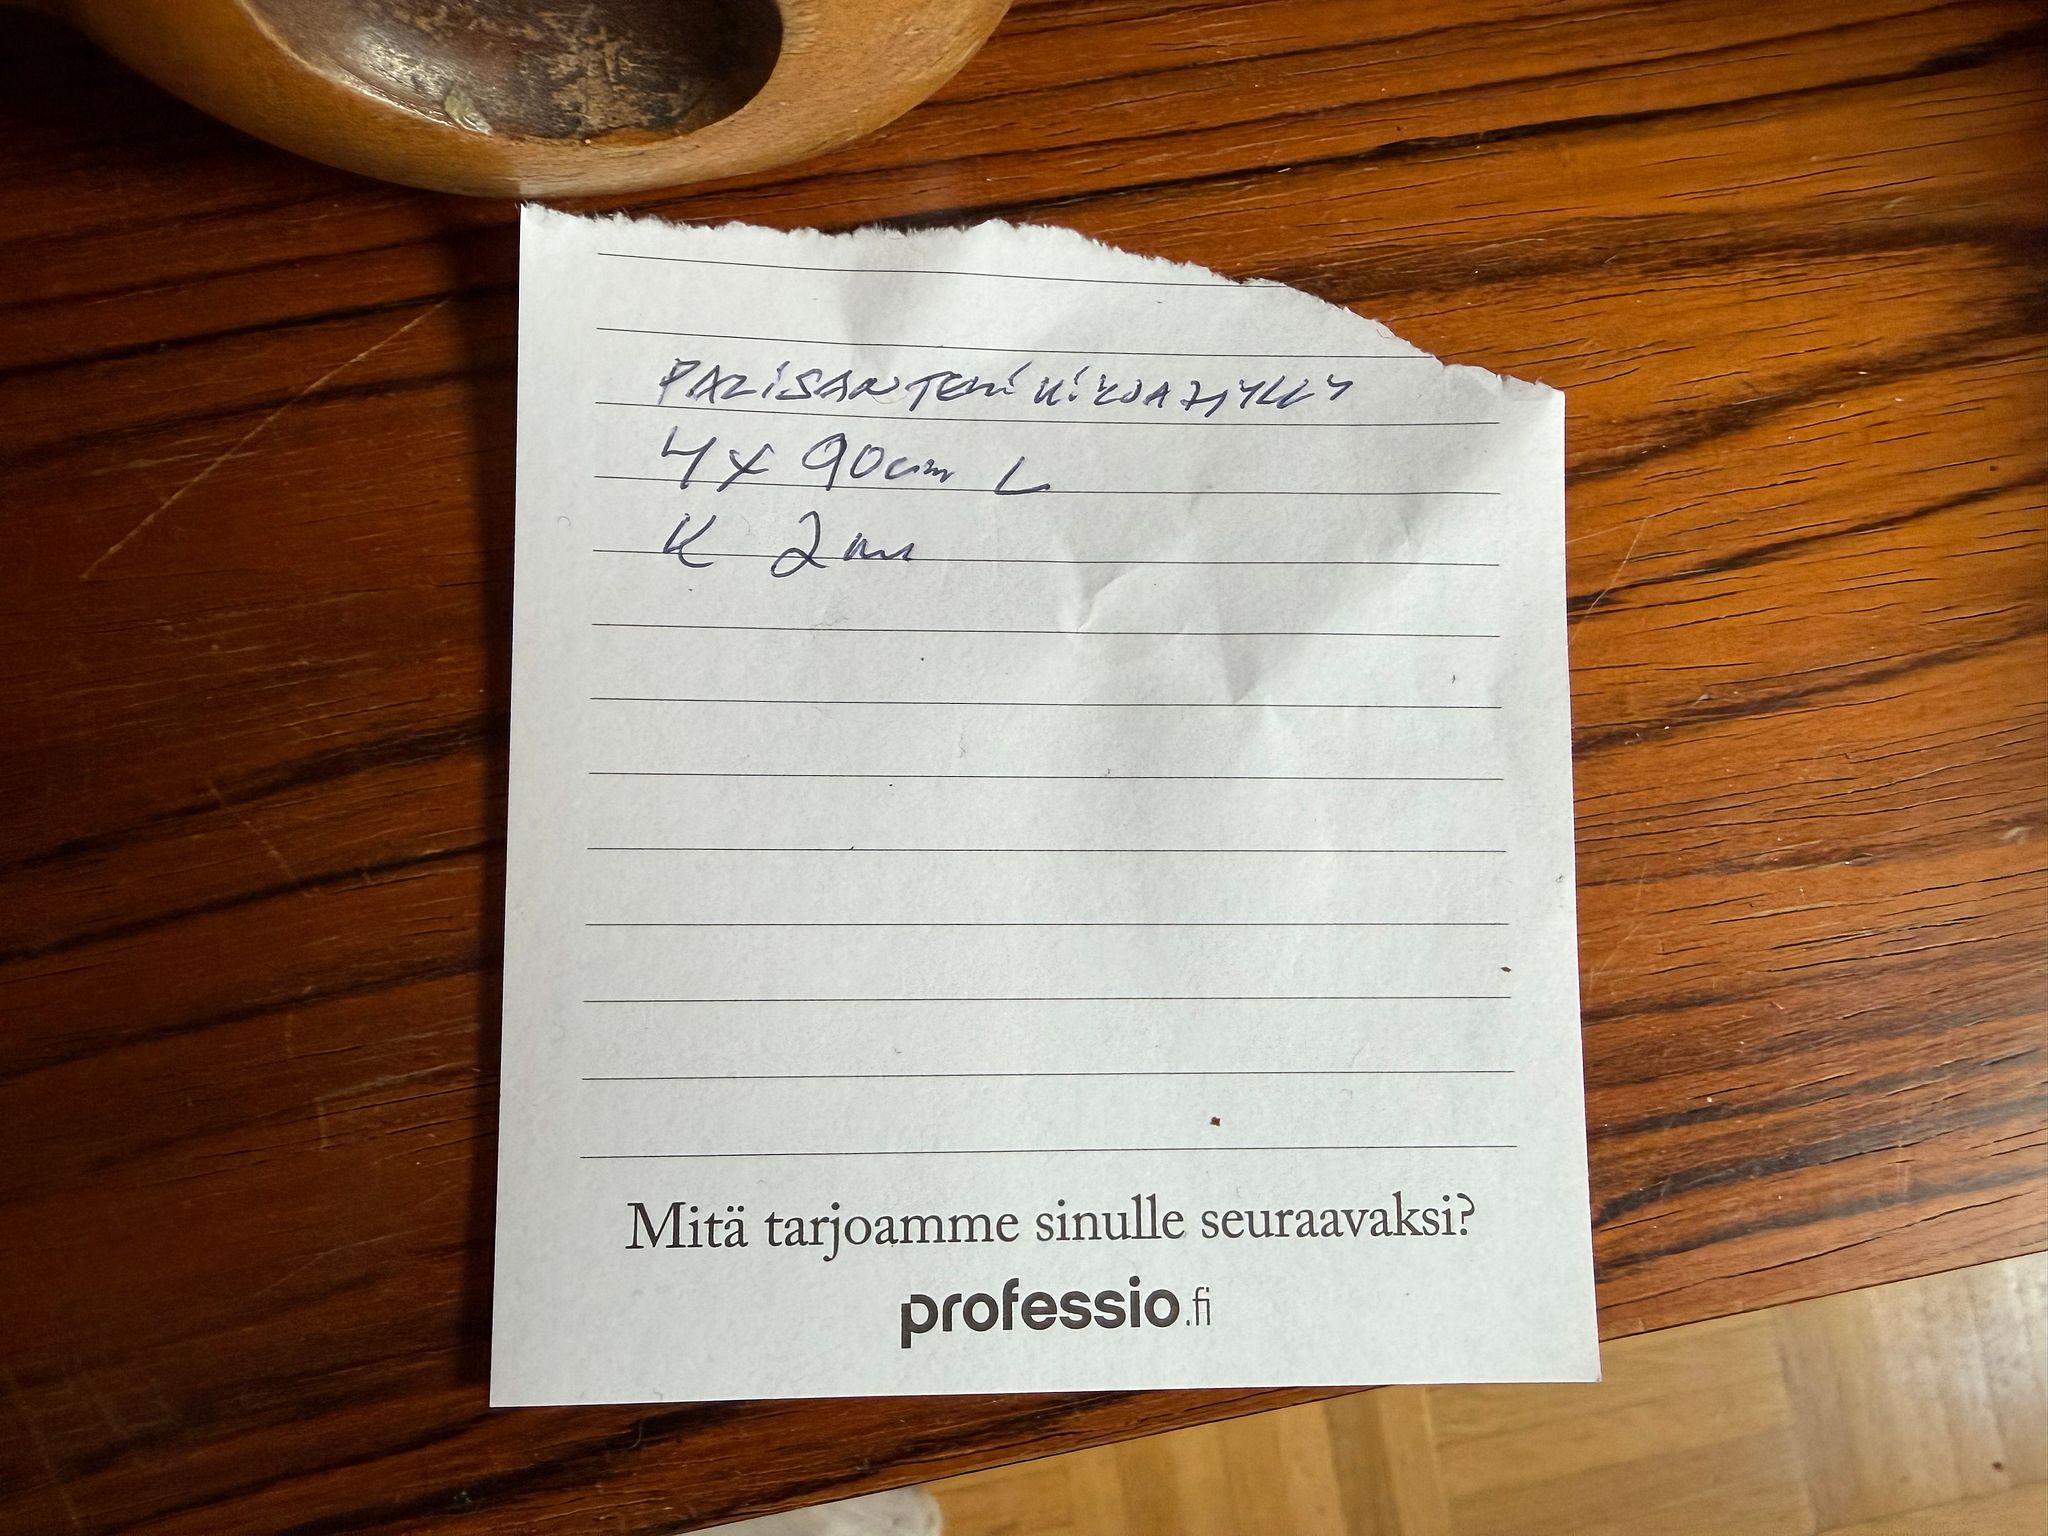 PALISANTERI KIRJAHYLLY
4x 90cm L
K 2m
Mitä tarjoamme sinulle seuraavaksi?
professio.fi